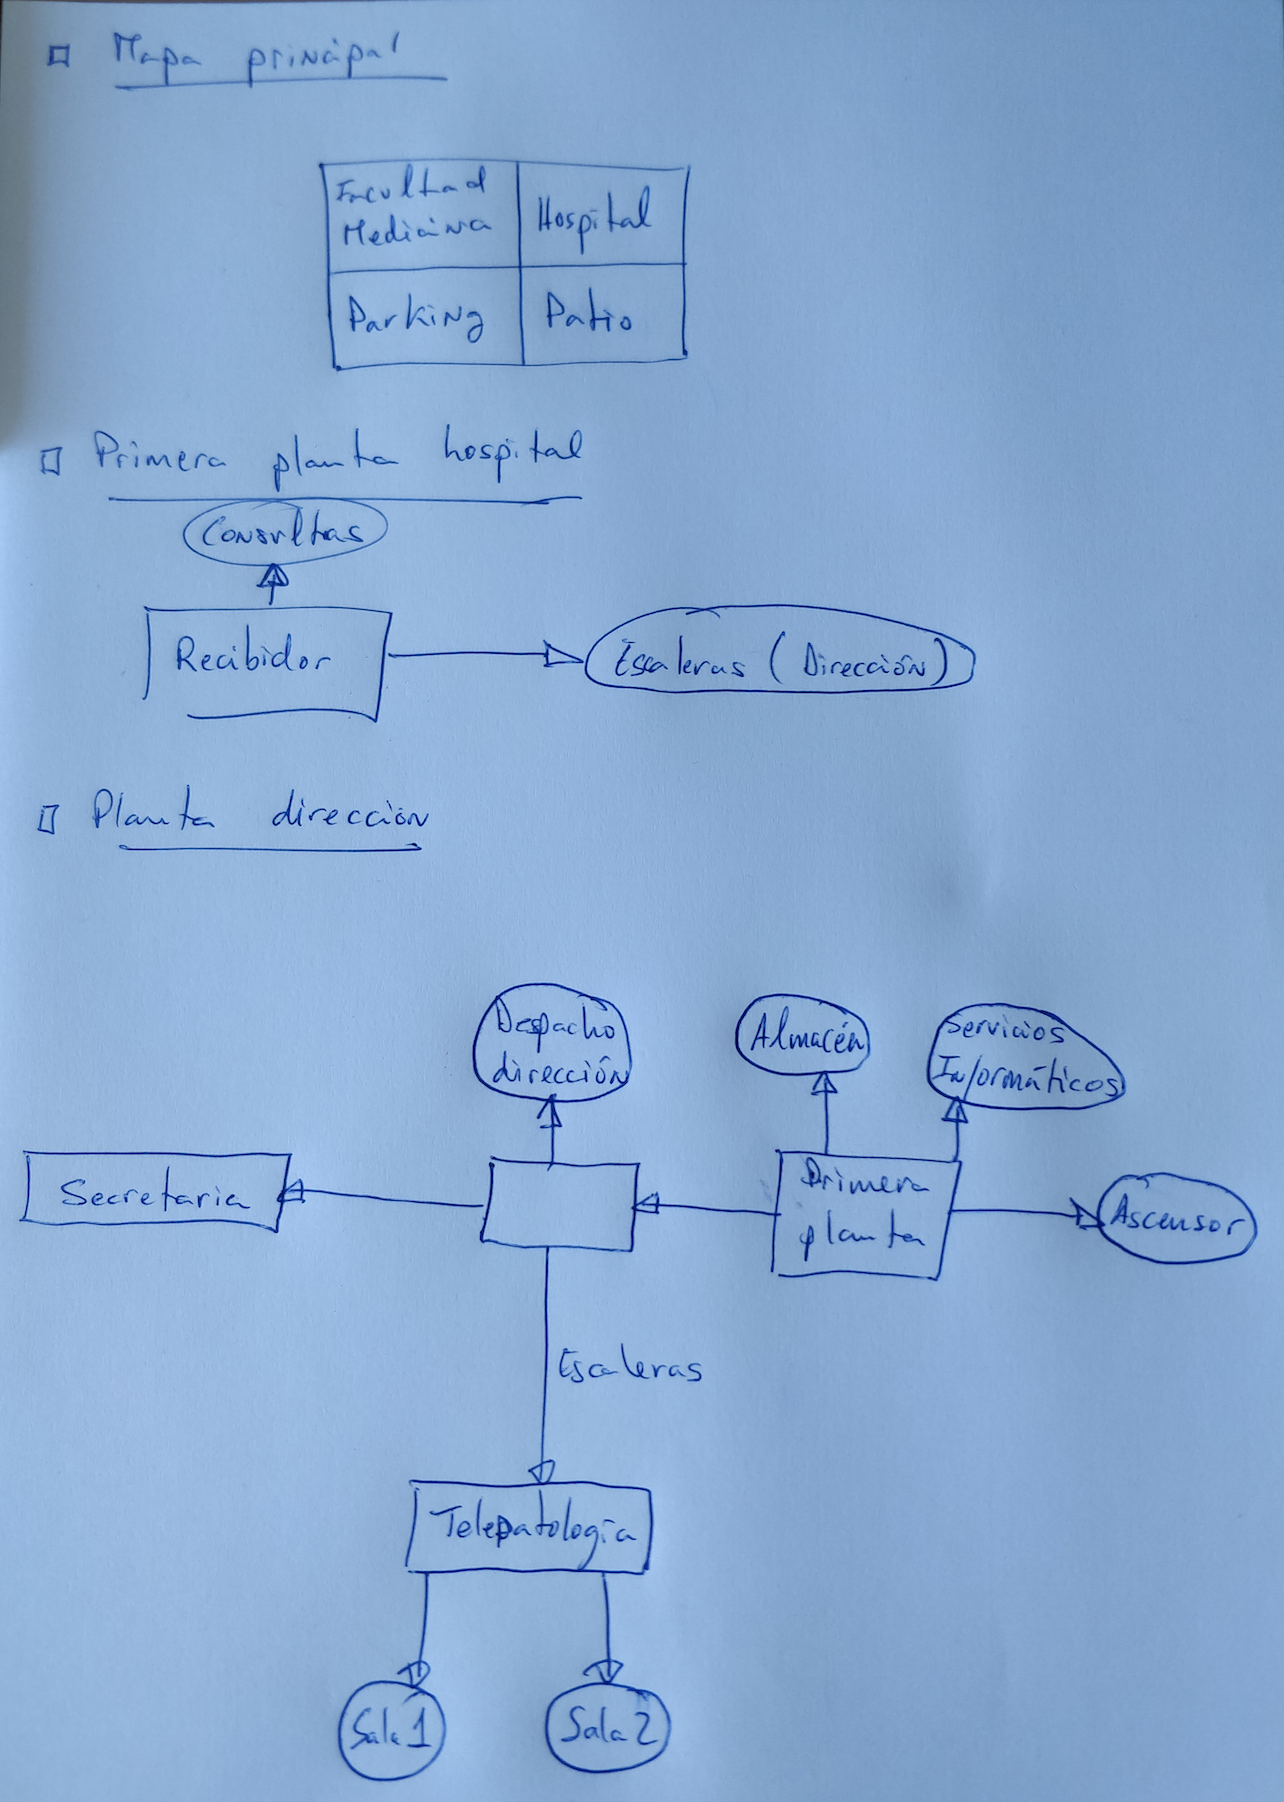 Mapa principal
Facultad
Medicina
Hospital
Parking
Patio
Primera planta hospital
Consultas
Recibidor
Escaleras (Dirección)
Planta dirección
Despacho
dirección
Almacén
Servicios
Informáticos
Secretaria
Primera
planta
Ascensor
Escaleras
Telepatología
Sala 1
Sala 2